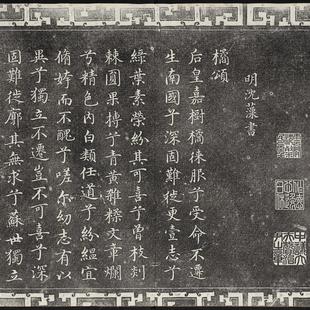 明沈藻書
橘頌
后皇嘉樹橘徠服兮受命不遷
生南國兮深固難徙更壹志兮
綠葉素榮紛其可喜兮曾枝剡
棘圓果摶兮青黃雜糅文章爛
兮精色内白類任道兮紛緼宜
脩姱而不醜兮嗟尔幼志有以
異兮獨立不遷豈不可喜兮深
固難徙廓其無求兮蘇世獨立